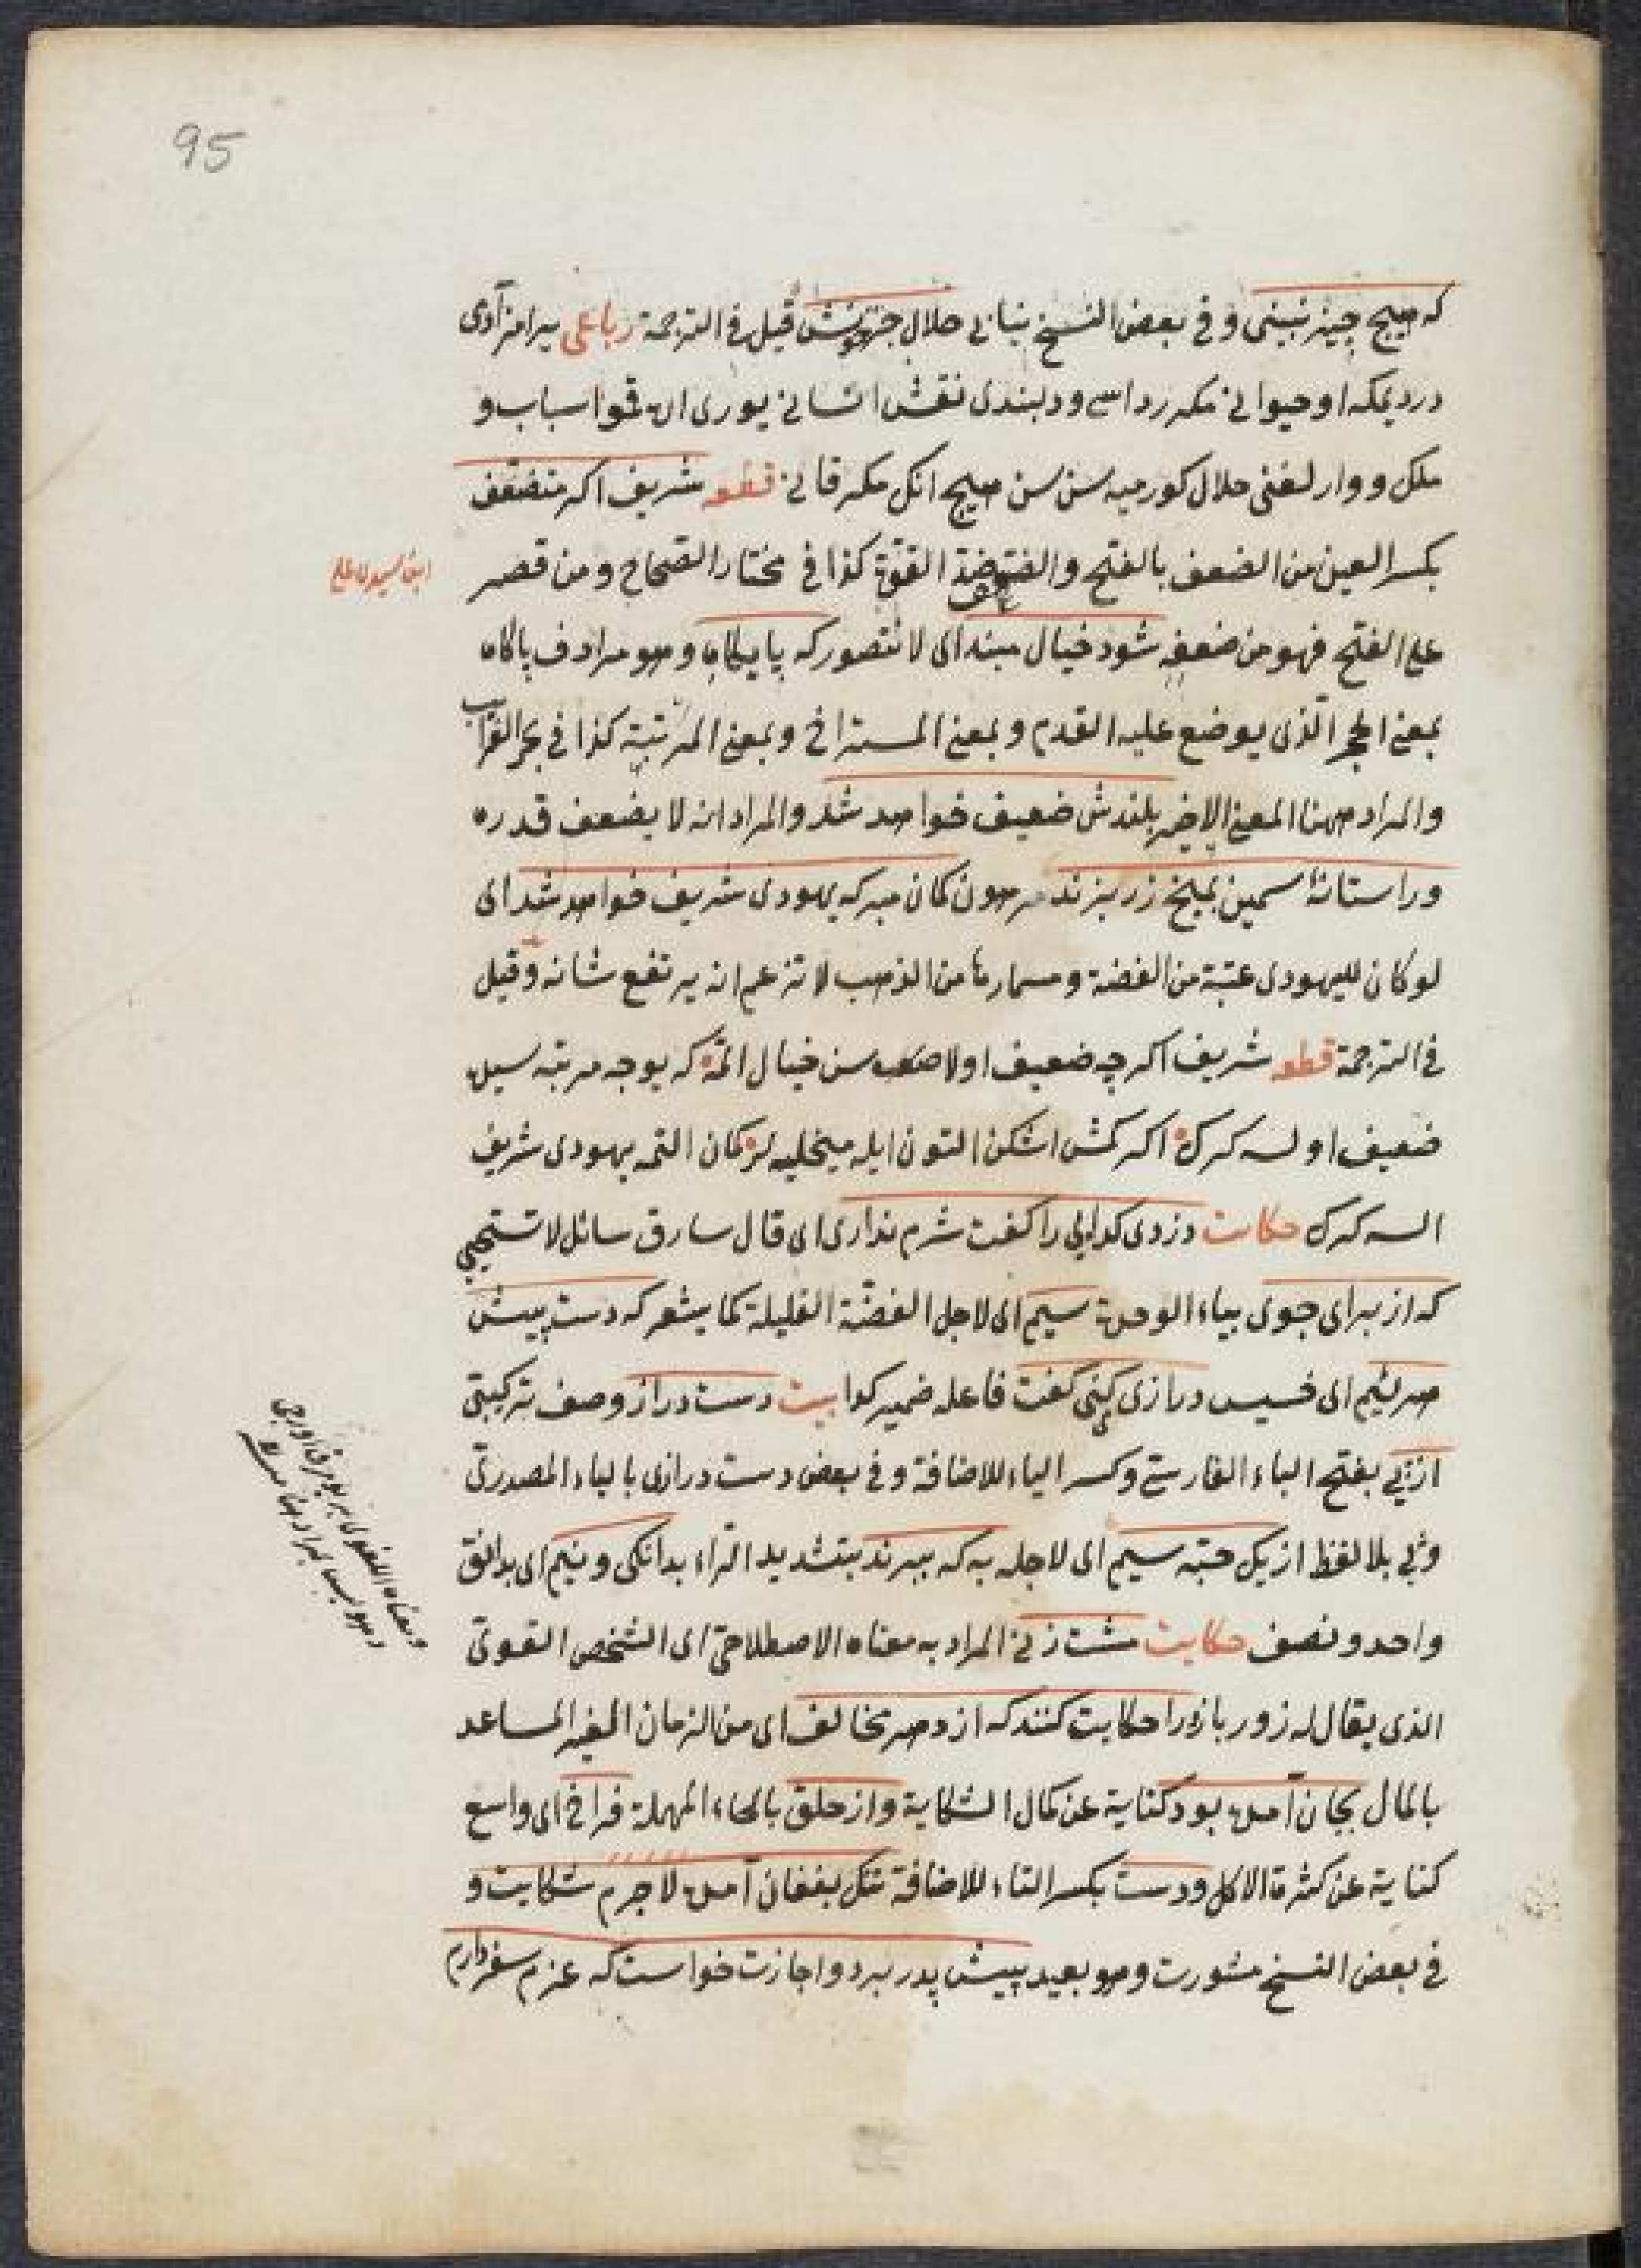 95
که هیچ چیز نبینی و فی بعض النسخ نیابی حلال جز خونش قیل فی الترجمة رباعی
دردیمکه او حیوانی مکر و ودلبندی نقش انسانی یوری قمو اسباب و
ملک و وار لغنی حلال کورمیه سن سن هیچ انک مکر قانی قطعه شریف اکر متضعّف
بکسر العین من الضعف بالفتح والضم ضد القوّة کذا فی مختار الصحاح و من قصر
علی الفتح فهو من ضعفه شود خیال مبند ای لا تتصور که پایکاه و هو مرادف پاکاه
بمعنی الحجر الّذی یوضع علیه القدم و بمعنی المستراخ و بمعنی المرتبة کذا فی بحر الغرائب
والمراد ههنا المعنی الاخیر بلندش ضعیف خواهد شد والمراد انه لا یضعف قدره
ور استانهٔ سیمین بمیخ زر بزند کمان مبر که یهودی شریف خواهد شد ای
لو کان للیهودی عتبة من الفضة و مسمارها من الذهب لا تزعم انه یرتفع شانه و قیل
فی الترجمة قطعه شریف اکرچه ضعیف اولا صنمه سن خیال اتمه که یوجه مرتبه سیله
ضعیف اولسه کرک اکر کمش اشکن التون ایله میخلیه لر کمان اتمه یهودی شریف
السه کرک حکایت دزدی کدایی را کفت شرم نداری ای قال سارق سائل لا تستحیی
که از برای جوی بیاء الوحدة سیم ای لاجل الفضّة القلیلة کما یشعر که دست پیش
هر لئیم ای خسیس درازی کنی کفت فاعله ضمیر کدا بیت دست دراز وصف ترکیبی
از پی بفتح الباء الفارسی و کسر الیاء للاضافة و فی بعض دست درازی بالیاء المصدری
و پی بلا لفظ از یک حبّه سیم ای لاجله به که ببرند بتشدید الرّاء بدانکی و نیم ای بدانق
واحد و نصف حکایت مشت زنی المراد به معناه الاصطلاحیّ ای الشخص القویّ
الذی یقال له زورباز را حکایت کنند که از دهر مخالف ای من الزمان الغیر المساعد
بالمال بجان آمده بود کنایة عن کمال الشکایة و از حلق بالحاء المهملة فراخ ای واسع
کنایة عن کثرة الاکل و دست بکسر التاء للاضافة تنک بفغان آمده لاجرم شکایت و
فی بعض النسخ مشورت و هو بعید پیش پدر برد و اجازت خواست که عزم سفر دارم